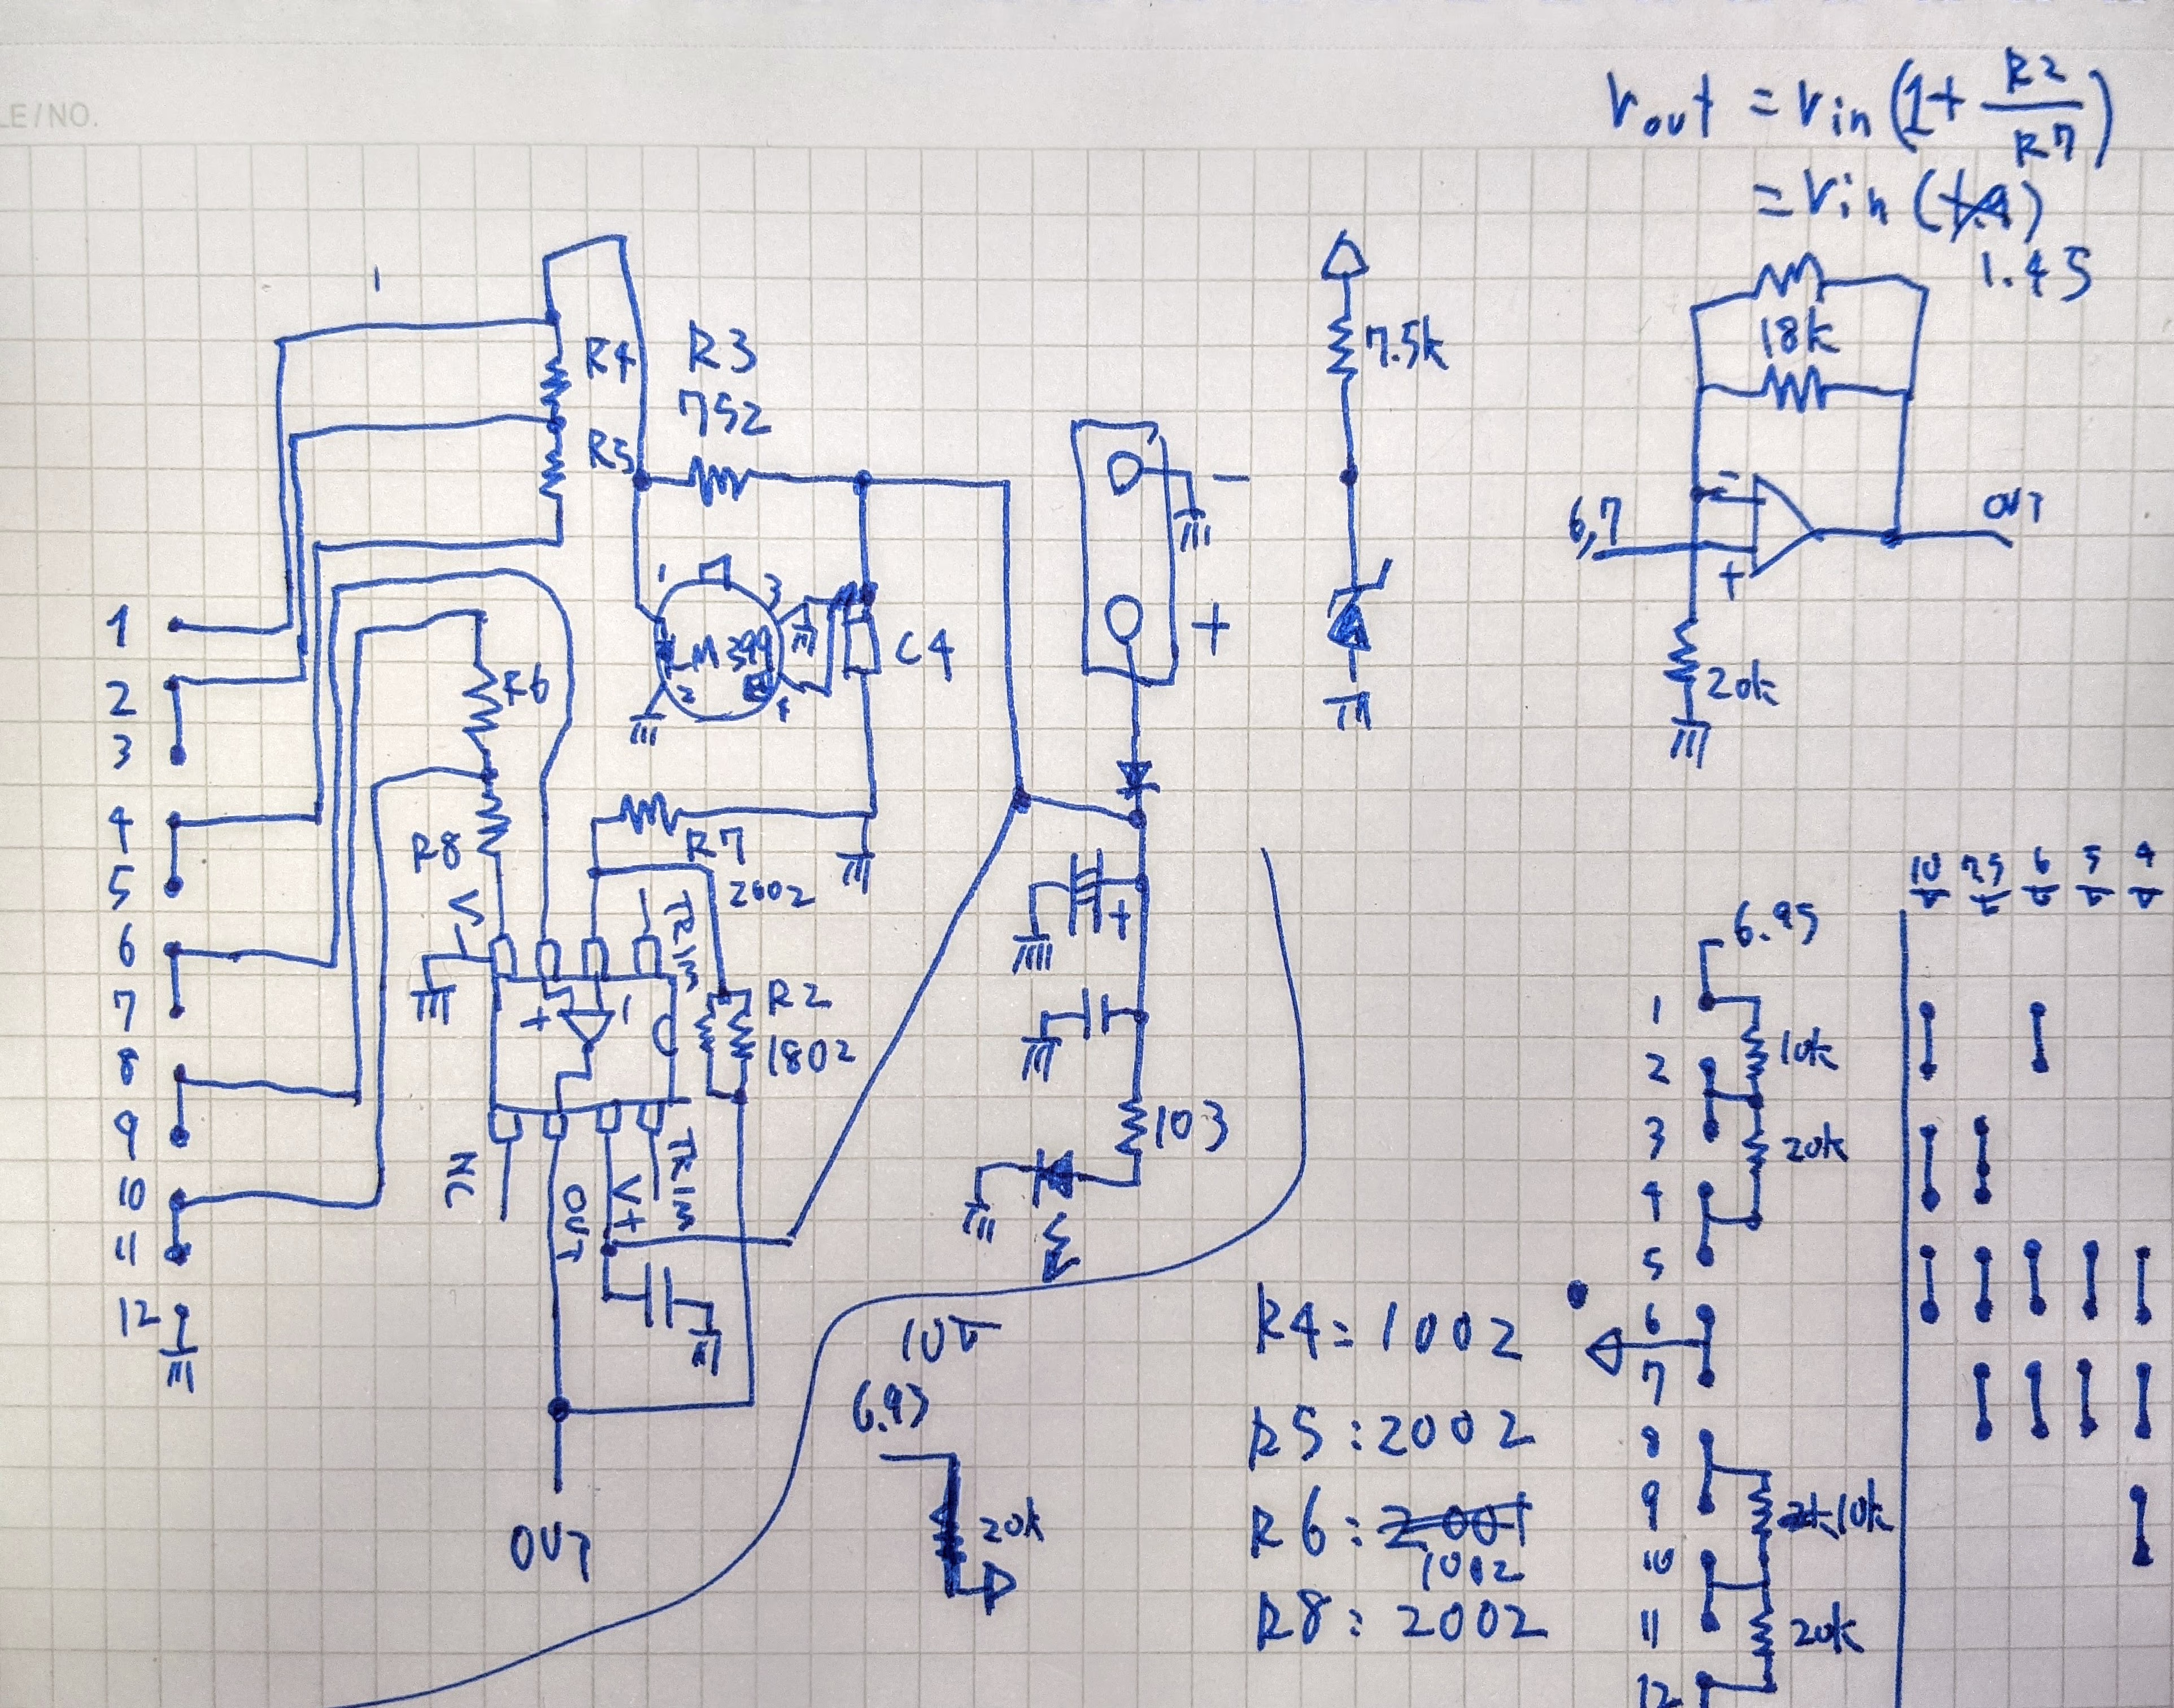 LE/NO.
Vout = Vin (1 + R2/R7)
= Vin (1.9)
1.45
R4
R3
752
R5
7.5k
18k
6,7
-
+
OUT
20k
1
2
3
4
5
6
7
8
9
10
11
12
1
3
LM399
2
4
C4
-
+
R6
R8
R7
2002
V-
TRIM
+
-
R2
1802
NC
OUT
V+
TRIM
OUT
+
103
10V
6.93
20k
R4: 1002
R5: 2002
R6: 2001
1002
R8: 2002
10V 7.5V 6V 5V 4V
6.95
1
2
3
4
5
6
7
8
9
10
11
12
10k
20k
2k 10k
20k